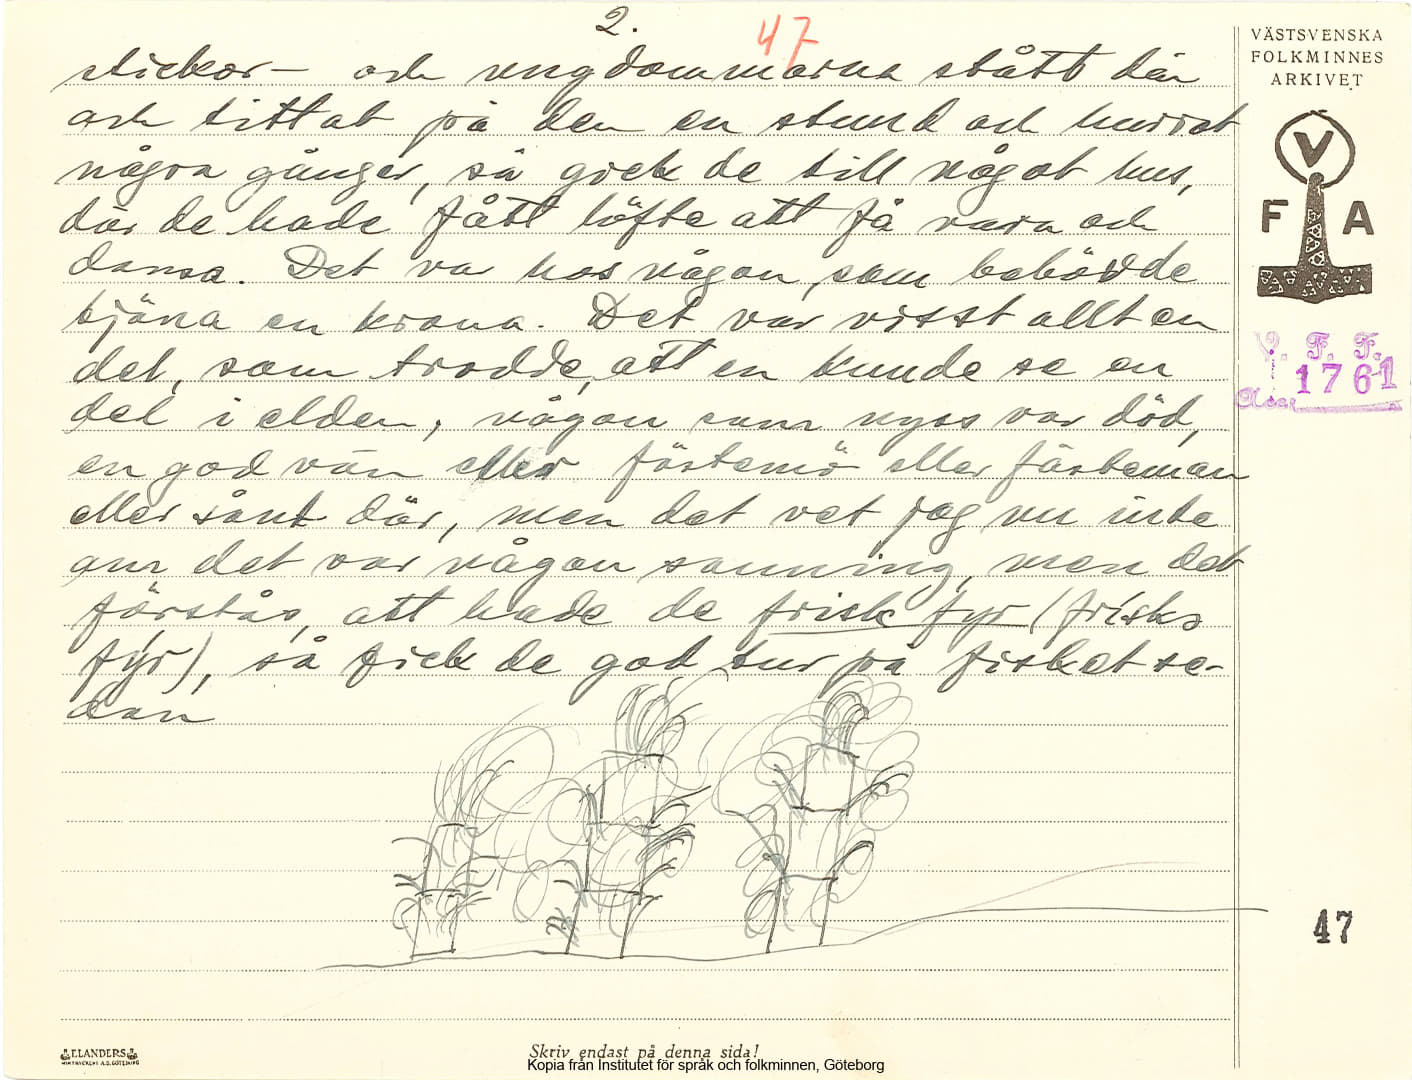 2.
47
stickor – och ungdommarna stått där
och tittat på den en stund och hurrat
några gånger, så gick de till något hus,
där de hade fått löfte att få vara och
dansa. Det var hos någon, som behövde
tjäna en krona. Det var visst allt en
del, som trodde, att en kunde se en
del i elden, någon som nyss var död,
en god vän eller fästemö eller fästeman
eller sånt där, men det vet jag nu inte
om det var någon sanning, men det
förstås, att hade de frisk fyr (friskę
fyr), så fick de god tur på fisket se-
dan
VÄSTSVENSKA
FOLKMINNES
ARKIVET
V
F A
V. F. F.
1761
47
ELANDERS
BOKTRYCKERI A.B. GÖTEBORG
Skriv endast på denna sida!
Kopia från Institutet för språk och folkminnen, Göteborg